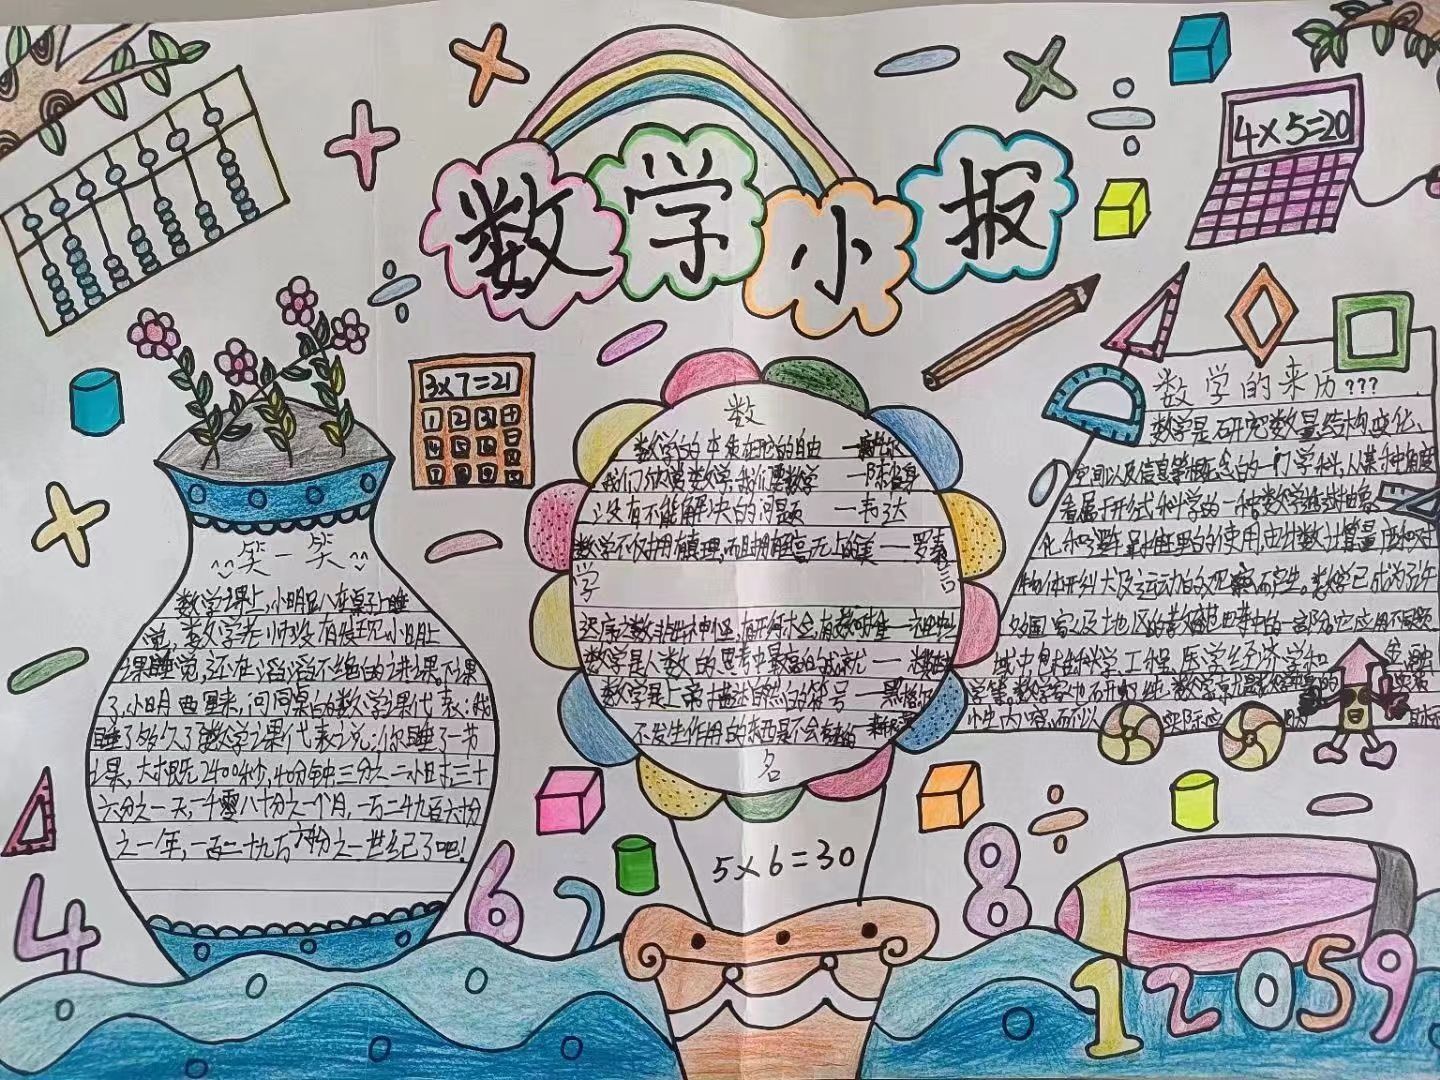 数学小报
4×5=20
3×7=21
1 2 3
4 5 6
笑一笑
数学课上,小明趴在桌子上睡
觉,数学老师没有发现小明上
课睡觉,还在滔滔不绝的讲课。下课
了,小明醒来,问同桌的数学课代表:我
睡了多久了数学课代表说:你睡了一节
课,大概2400秒,40分钟,三分之二小时,三十
六分之一天,一千零八十分之一个月,一万二千九百六十份
之一年,一百二十九万六份之一世纪了吧!
数
数学的本质在于它的自由
我们欣赏数学,我们需要数学 —陈省身
没有不能解决的问题 —韦达
数学不仅拥有真理,而且拥有至高无上的美 —罗素
学
言
数学是人类的思考中最高的成就
数学是上帝描述自然的符号 —黑格尔
不发生作用的东西是不会存在的
名
5×6=30
数学的来历???
数学是研究数量、结构、变化、
空间以及信息等概念的一门学科,从某种角度
看属于形式科学的一种数学透过抽象
化和逻辑推理的使用,由计数计算量度和对
物体形状及运动的观察而产生。数学已成为许多
国家及地区的教育范畴中的一部分它应用不同领
域中包括科学、工程、医学经济学和金融
学等,数学家也研究纯数学就是数学
性内容而不以 实际应用
4
6
7
8
1 2 0 5 9